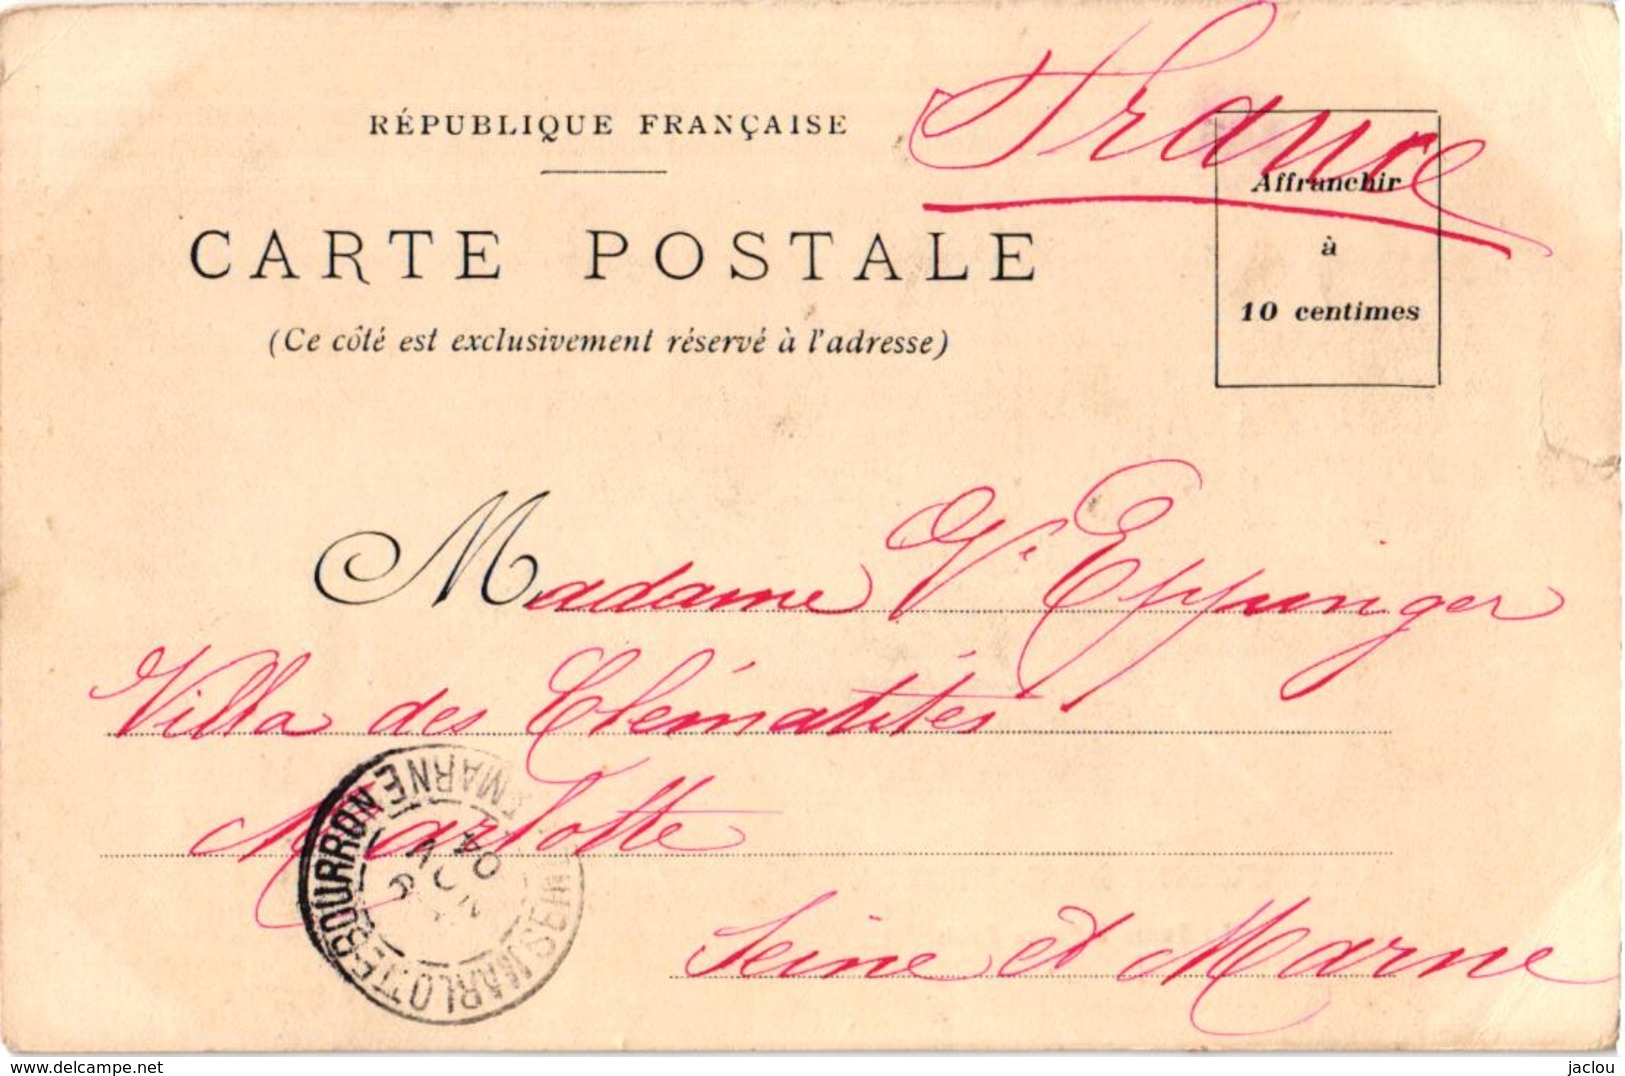 France
RÉPUBLIQUE FRANÇAISE
CARTE POSTALE
(Ce côté est exclusivement réservé à l'adresse)
Affranchir
à
10 centimes
Madame Vᵉ Eppinger
Villa des Clématites
Marlotte
Seine et Marne
MARLOTTE-BOURRON
SEINE ET MARNE
04
www.delcampe.net
jaclou